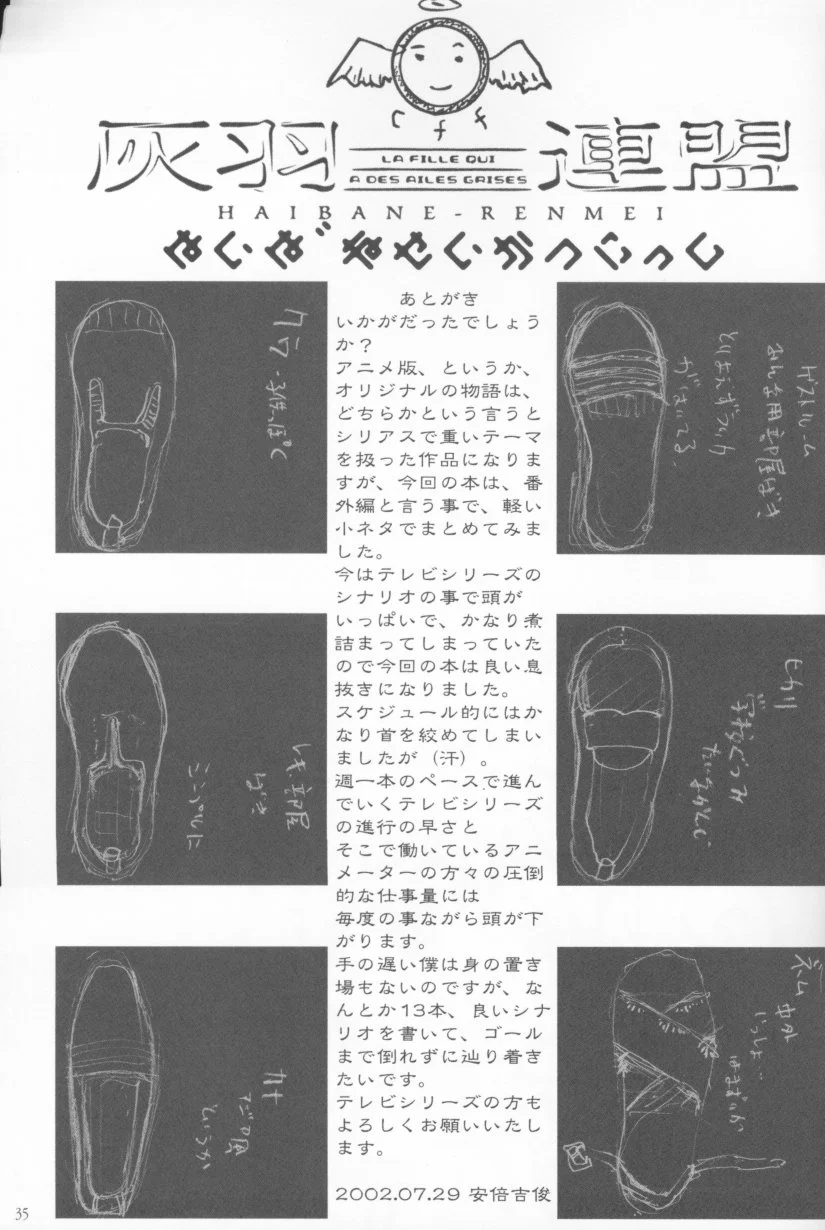 C f f
灰羽連盟
LA FILLE QUI
A DES AILES GRISES
HAIBANE-RENMEI
はいばねせいかつにっし
あとがき
いかがだったでしょう
か？
アニメ版、というか、
オリジナルの物語は、
どちらかという言うと
シリアスで重いテーマ
を扱った作品になりま
すが、今回の本は、番
外編と言う事で、軽い
小ネタでまとめてみま
した。
今はテレビシリーズの
シナリオの事で頭が
いっぱいで、かなり煮
詰まってしまっていた
ので今回の本は良い息
抜きになりました。
スケジュール的にはか
なり首を絞めてしまい
ましたが（汗）。
週一本のペースで進ん
でいくテレビシリーズ
の進行の早さと
そこで働いているアニ
メーターの方々の圧倒
的な仕事量には
毎度の事ながら頭が下
がります。
手の遅い僕は身の置き
場もないのですが、な
んとか13本、良いシナ
リオを書いて、ゴール
まで倒れずに辿り着き
たいです。
テレビシリーズの方も
よろしくお願いいたし
ます。
2002.07.29 安倍吉俊
クラ・子供っぽく
ゲストルーム
みんな用部屋ばき
とりあえずラッカ
がはいてる
レキ 部屋
ばき
ヒカリ
カナ
というか
ネム
35